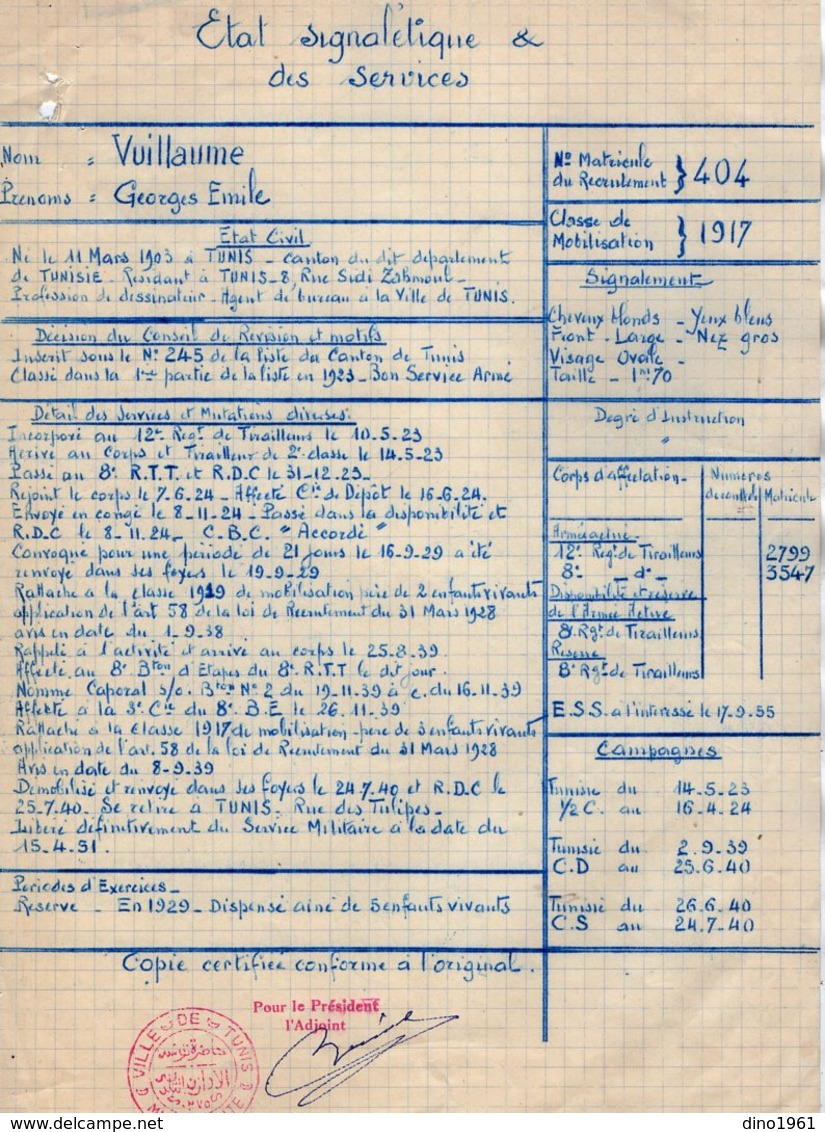 Etat signalétique &
des Services
Nom = Vuillaume
Prenoms = Georges Emile
Etat Civil
Né le 11 Mars 1903 à TUNIS - Canton du dit departement
de TUNISIE - Residant à TUNIS - 8, Rue Sidi
Profession de dessinateur - Agent de bureau à la Ville de TUNIS.
Décision du Conseil de Revision et motifs
Inscrit sous le N° 245 de la liste du Canton de Tunis
Classé dans la 1ère partie de la liste en 1923 - Bon Service Armé
Détail des Services et Mutations diverses:
Incorporé au 12e Regt de Tirailleurs le 10.5.23
Arrivé au Corps et Tirailleur de 2e classe le 14.5-23
Passé au 8e R.T.T. et R.D.C le 31-12.23-
Rejoint le corps le 7.6.24 - Affecté Cie de Dépôt le 16.6.24.
Envoyé en congé le 8-11-24 - Passé dans la disponibilité et
R.D.C le 8-11.24 - C.B.C. "Accordé"
Convoqué pour une période de 21 jours le 16-9-29 a été
renvoyé dans ses foyers le 19-9-29
Rattaché à la classe 1919 de mobilisation père de 2 enfants vivants
application de l'art 58 de la loi de Recrutement du 31 Mars 1928
avis en date du 1-9.38
Rappelé à l'activité et arrivé au corps le 25.8.39.
Affecté au 8e Bton d'Etapes du 8e R.T.T le dit jour.
Nommé Caporal s/o. Bton N° 2 du 19-11.39 à c. du 16.11.39
Affecté à la 3e Cie du 8e B.E le 26.11.39
Rattaché à la classe 1917 de mobilisation - père de 3 enfants vivants
application de l'art. 58 de la loi de Recrutement du 31 Mars 1928
Avis en date du 8-9.39
Démobilisé et renvoyé dans ses foyers le 24.7.40 et R.D.C le
25.7.40. Se retire à TUNIS. Rue des Tulipes-
Libéré définitivement du Service Militaire à la date du
15.4.51.
Periodes d'Exercices-
Reserve - En 1929 - Dispensé ainé de 5 enfants vivants
N° Matricule
du Recrutement } 404
Classe de
Mobilisation } 1917
Signalement
Cheveux blonds - Yeux bleus
Front - Large - Nez gros
Visage Ovale -
Taille - 1m70
Degré d'Instruction
"
Corps d'affectation - Numeros
Matricule
Armée active
12e Regt de Tirailleurs 2799
8e - d° - 3547
Disponibilité et réserve
de l'Armée Active
8e Rgt de Tirailleurs
Reserve
8e Rgt de Tirailleurs
E.S.S. à l'interessé le 17.9.55
Campagnes
Tunisie du 14.5.23
1/2 C. au 16.4.24
Tunisie du 2.9.39
C.D au 25.6.40
Tunisie du 26.6.40
C.S au 24.7.40
Copie certifiée conforme à l'original.
Pour le Président
l'Adjoint
VILLE DE TUNIS
حاضرة تونس
dino1961